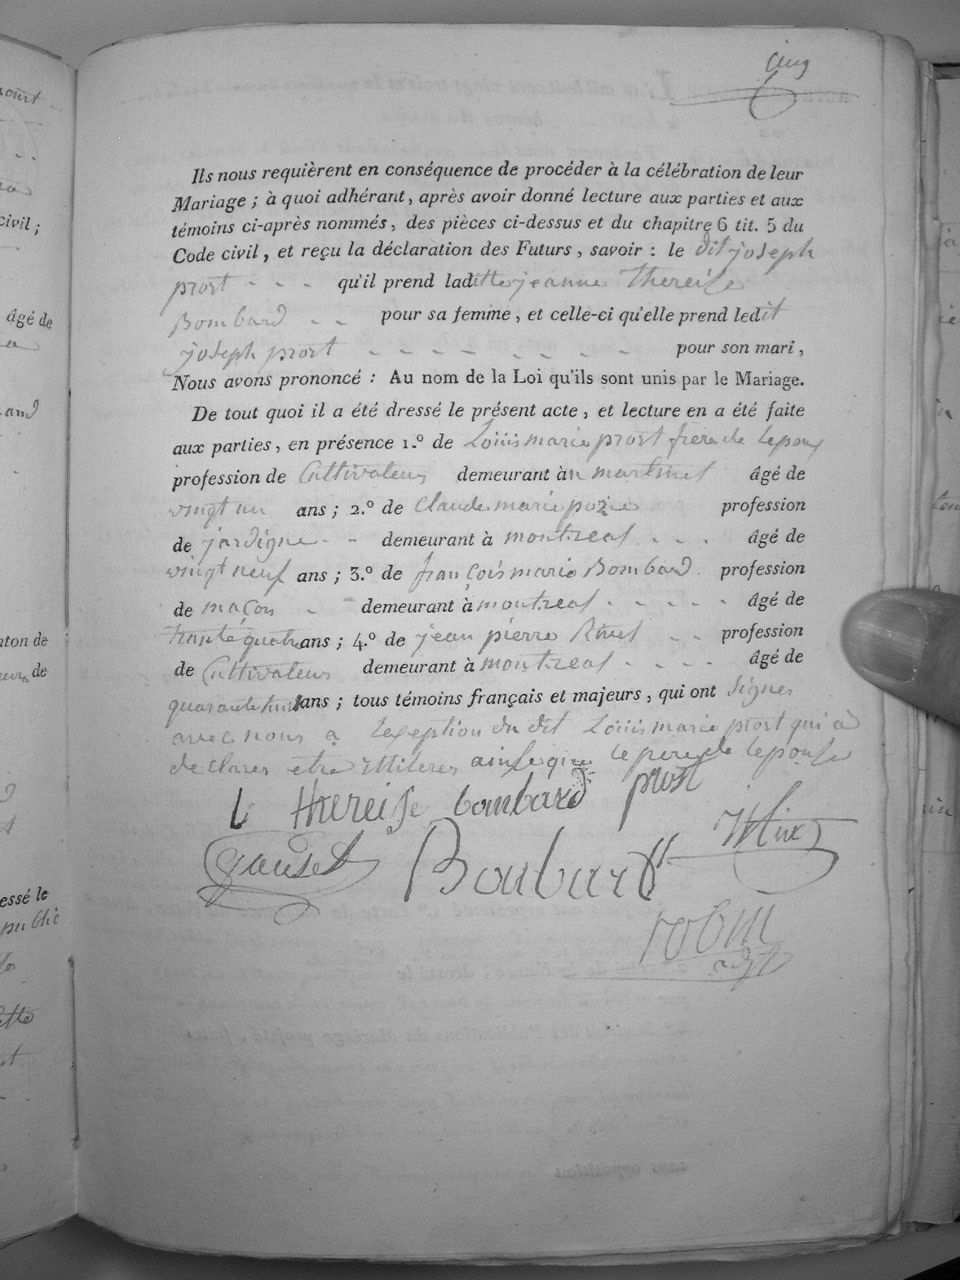 cinq
Ils nous requièrent en conséquence de procéder à la célébration de leur
Mariage ; à quoi adhérant, après avoir donné lecture aux parties et aux
témoins ci-après nommés, des pièces ci-dessus et du chapitre 6 tit. 5 du
Code civil, et reçu la déclaration des Futurs, savoir : le dit joseph
prost - - - qu'il prend laditte jeanne thereise
Bombard - - pour sa femme, et celle-ci qu'elle prend ledit
joseph prost - - - - - - - - pour son mari,
Nous avons prononcé : Au nom de la Loi qu'ils sont unis par le Mariage.
De tout quoi il a été dressé le présent acte, et lecture en a été faite
aux parties, en présence 1.º de Loüis marie prost frere de lepoux
profession de Cultivateur demeurant à martinet âgé de
vingt un ans ; 2.º de Claude marie profession
de demeurant à montreal - - - âgé de
vingt neuf ans ; 3.º de françois marie Bombard profession
de maçon - - demeurant à montreal - - - - - âgé de
trante quatre ans ; 4.º de jean pierre - - profession
de Cultivateur demeurant à montreal - - - - âgé de
quarante ans ; tous témoins français et majeurs, qui ont signes
avec nous a lexeption du dit Loüis marie prost qui a
declares etre illiteres ainsi que le pere de lepouse
thereise bombard prost
Boubard
robin